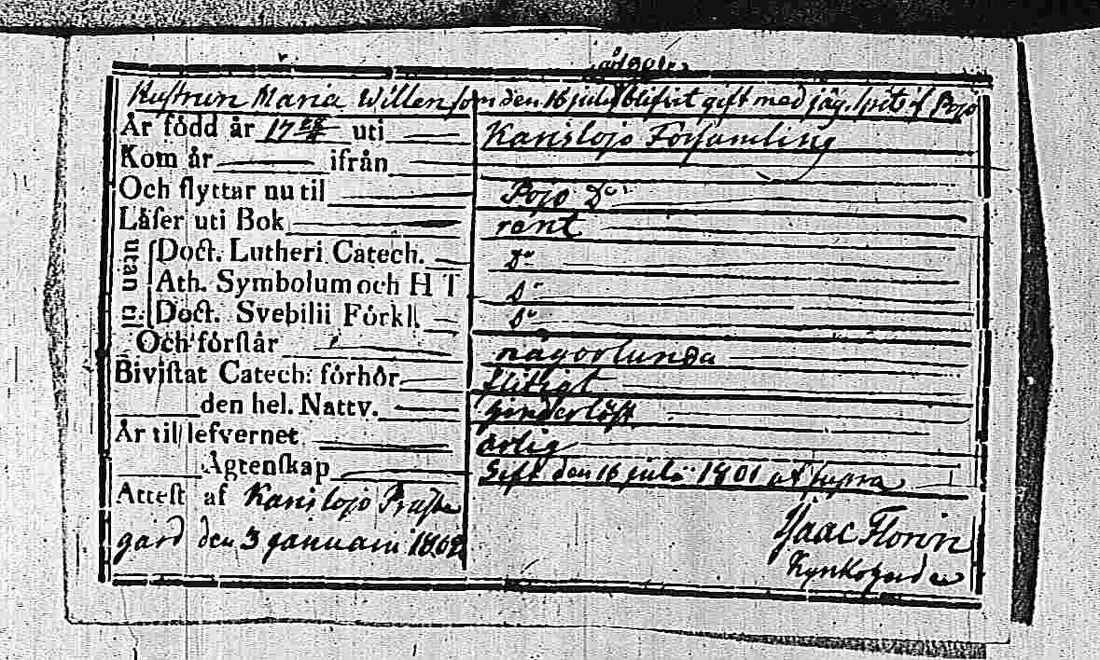 Hustrun Maria Willen som den 16 julii blifvit gift med jäg. i Pojo
År född år 17 uti Karislojo Församling
Kom år ifrån
Och flyttar nu til Pojo Do
Låser uti Bok rent
utan til
Doct. Lutheri Catech. Do
Ath. Symbolum och H T Do
Doct. Svebilii Fórkl. Do
Och fórstår någorlunda
Bivistat Catech: fórhór flitigt
den hel. Nattv.
År til lefvernet ärlig
Ågtenskap Gift den 16 julii 1801 ut supra
Attest af Karislojo Præste
gård den 3 januarii 1802
Isaac Florin
Kyrkoherde